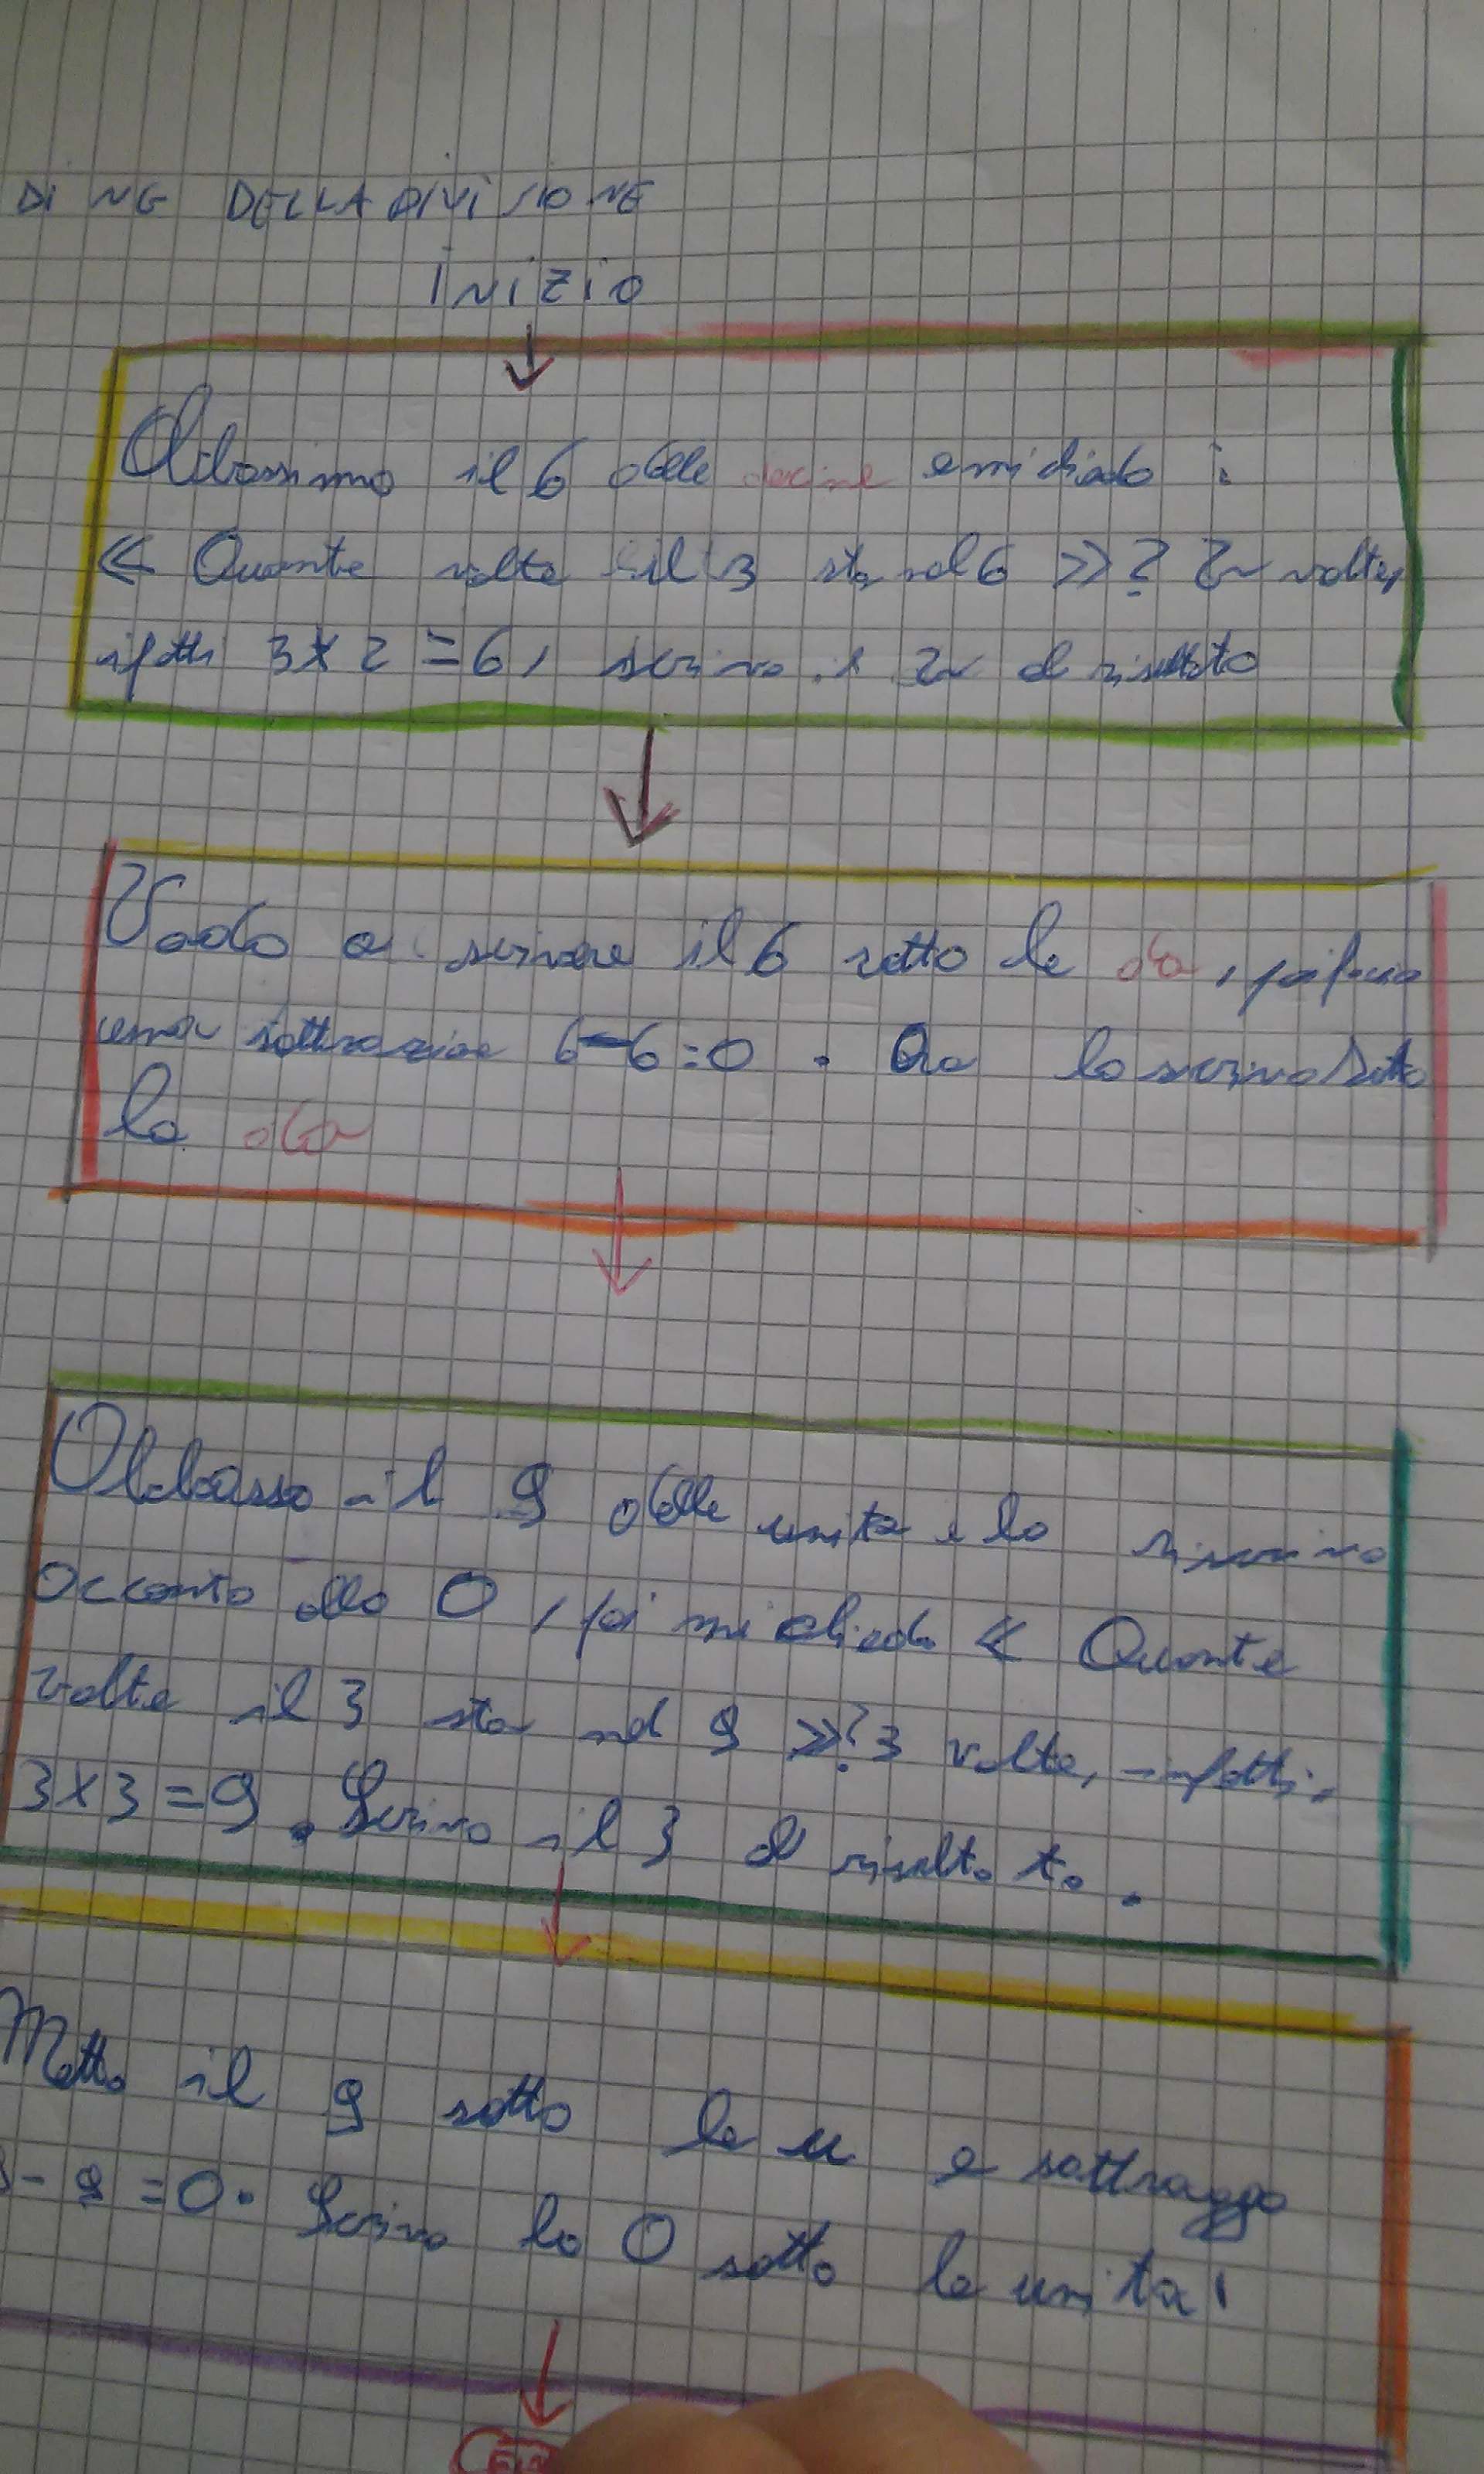 DI NG DELLA DIVISIONE
INIZIO
Abbassimo il 6 delle decine e mi chiedo :
« Quante volte il 3 sta nel 6 »? 2 volte,
ifatti 3x2=6, scrivo il 2 al risultato
Vado a scrivere il 6 sotto le da, poi faccio
una sottrazione 6-6=0. Ora lo scrivo sotto
la da
Abbasso il 9 delle unita e lo riscrivo
accanto allo 0, poi mi chiedo « Quante
volte il 3 sta nel 9 »? 3 volte, infatti
3x3=9. Scrivo il 3 al risultato.
Metto il 9 sotto le u e sottraggo
9-9=0. Scrivo lo 0 sotto le unita'